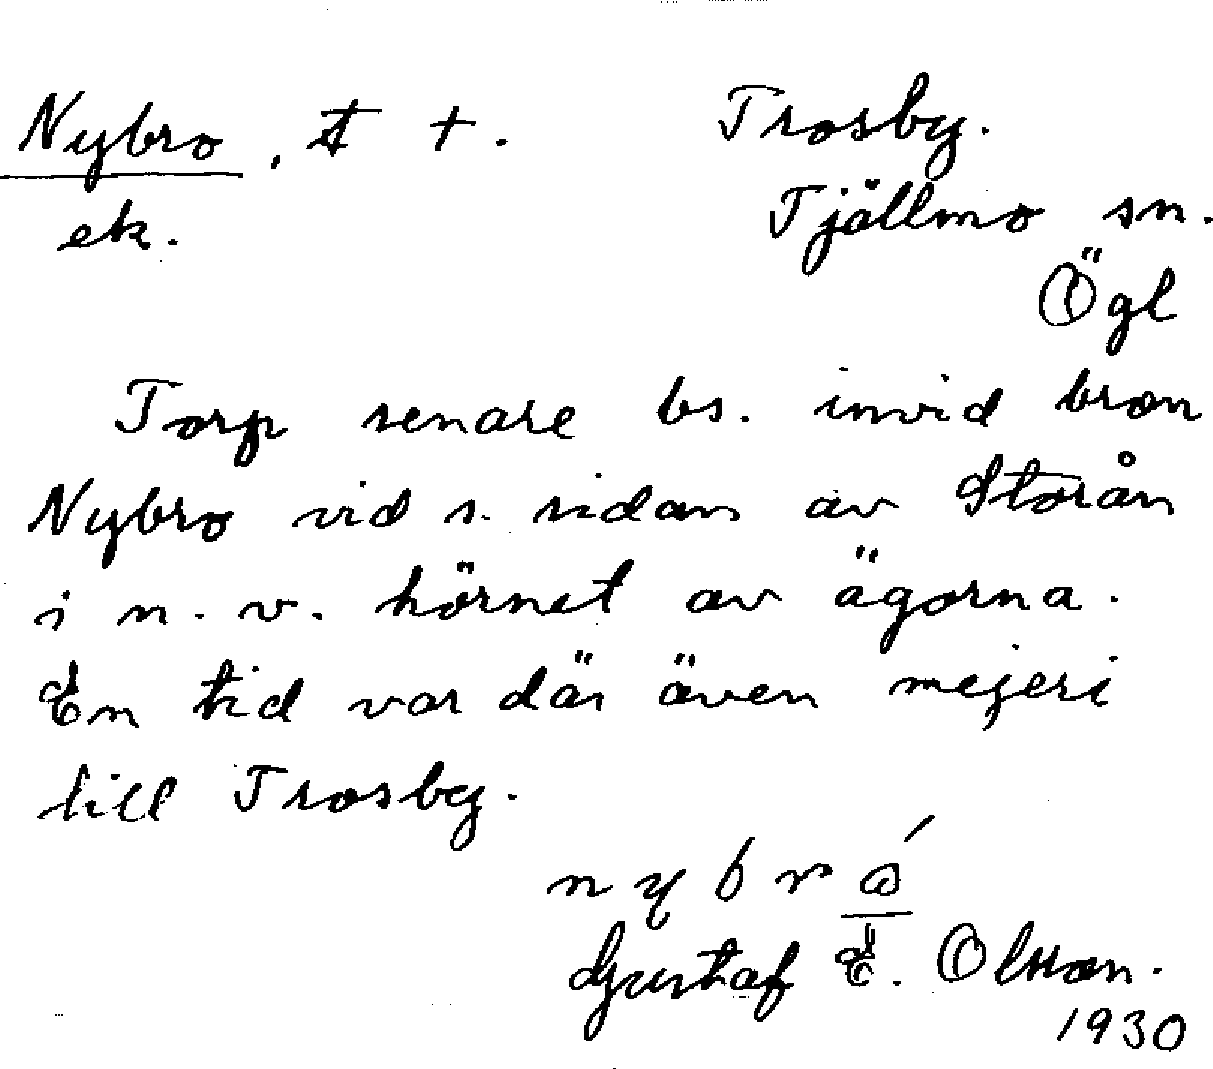 Nybro, t †. Trosby.
ek. Tjällmo sn.
Ögl
Torp senare bs. invid bron
Nybro vid s. sidan av Storån
i n. v. hörnet av ägorna.
En tid var där även mejeri
till Trosby.
nybrώ
Gustaf E. Olsson.
1930